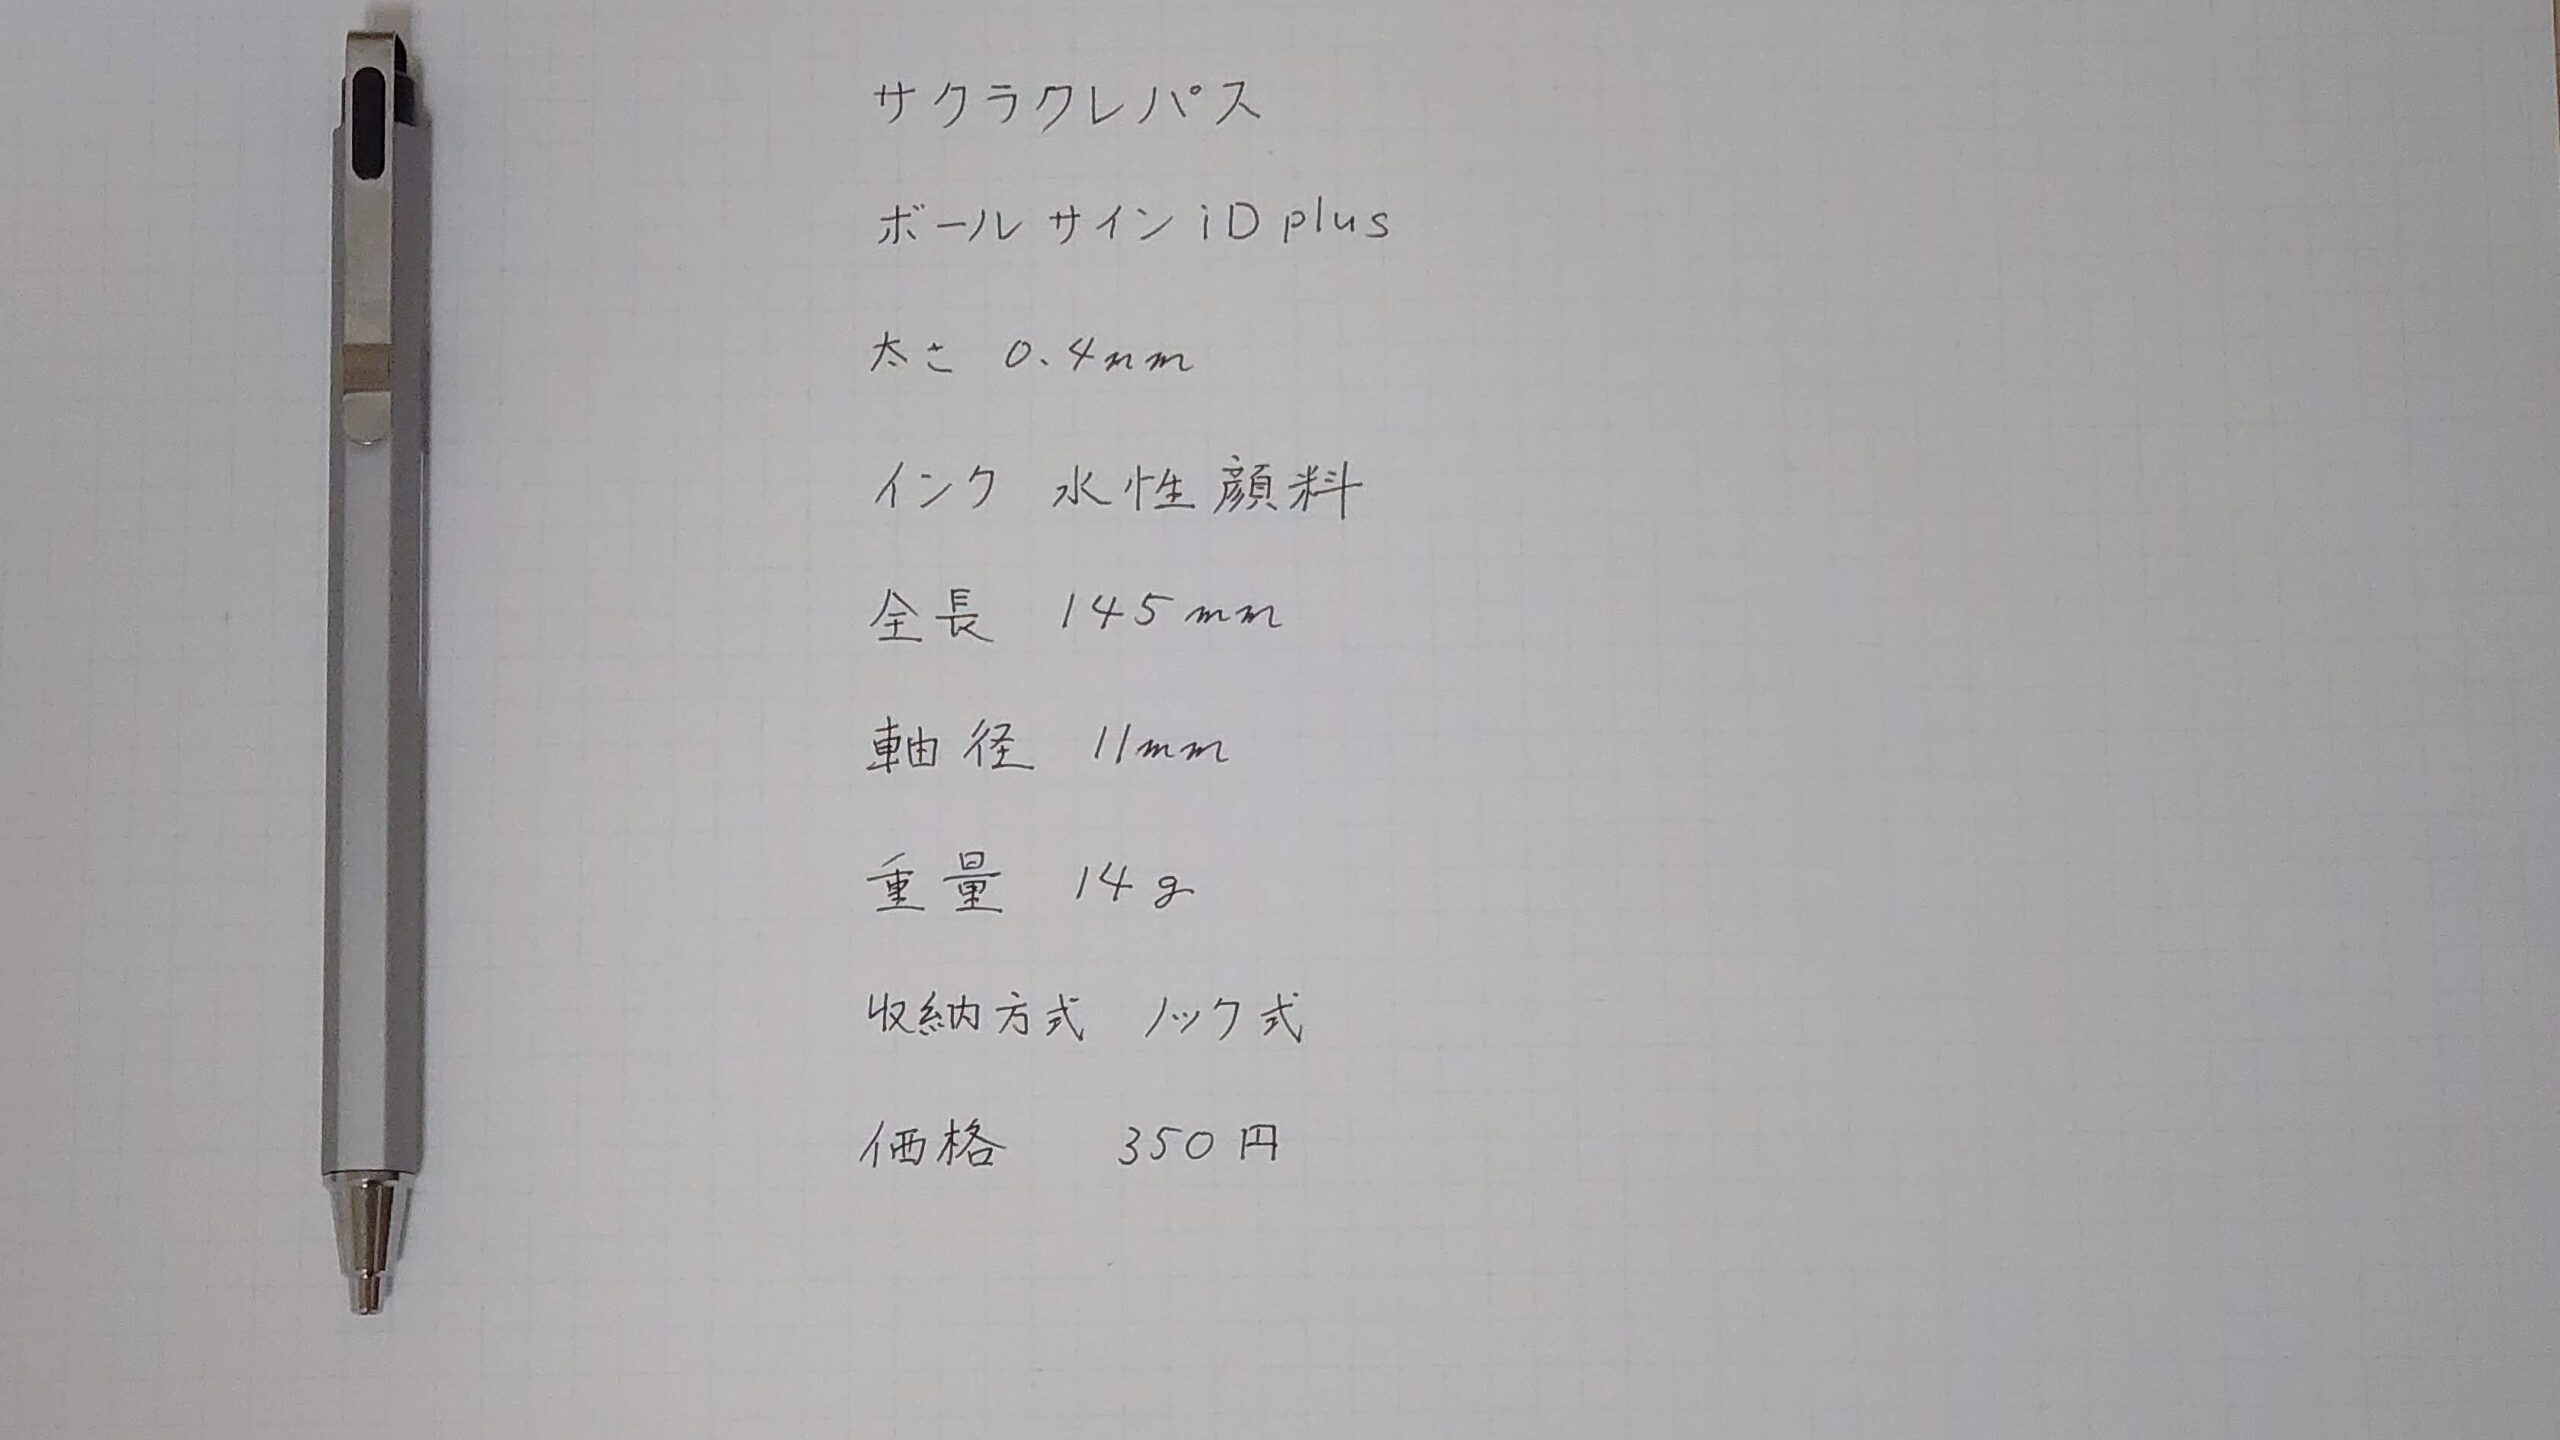 サクラクレパス
ボールサイン iD plus
太さ 0.4mm
インク 水性顔料
全長 145mm
軸径 11mm
重量 14g
収納方式 ノック式
価格 350円